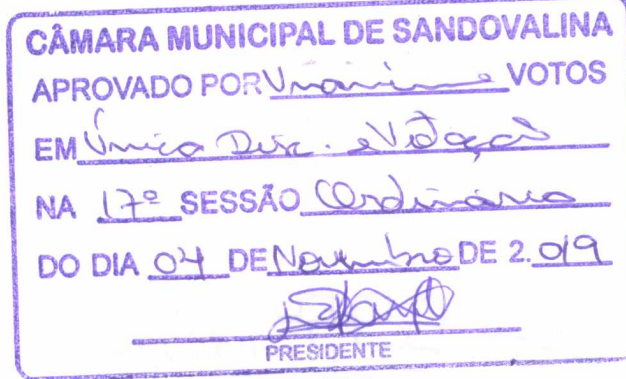 CÂMARA MUNICIPAL DE SANDOVALINA
APROVADO POR Unanime VOTOS
EM Única Disc. e Votação
NA 17º SESSÃO Ordinária
DO DIA 04 DE Novembro DE 2.019
PRESIDENTE